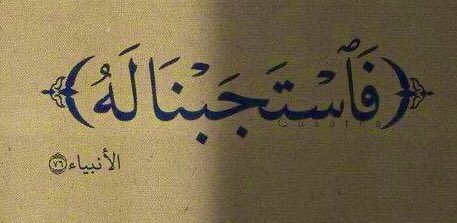 ﴿فَٱسْتَجَبْنَا لَهُ﴾
الأنبياء ٧٦